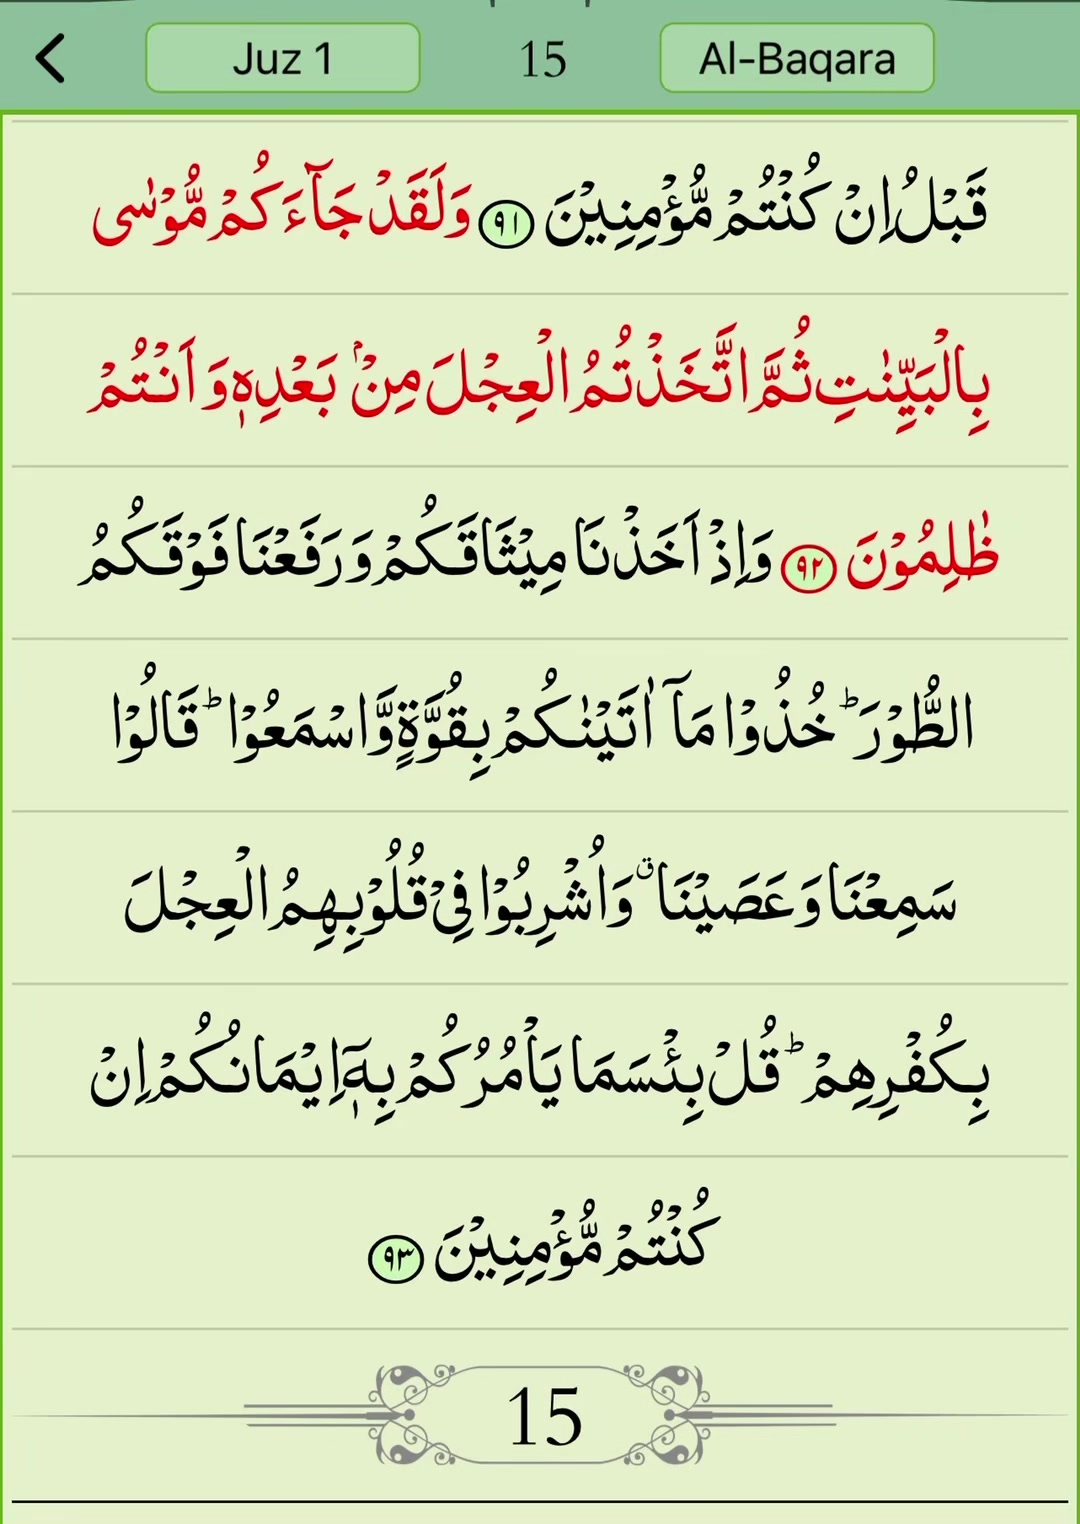 Juz 1 15 Al-Baqara
قَبْلُ اِنْ كُنْتُمْ مُّؤْمِنِيْنَ ۹۱ وَلَقَدْ جَآءَكُمْ مُّوْسٰى
بِالْبَيِّنٰتِ ثُمَّ اتَّخَذْتُمُ الْعِجْلَ مِنْۢ بَعْدِهٖ وَ اَنْتُمْ
ظٰلِمُوْنَ ۹۲ وَاِذْ اَخَذْنَا مِيْثَاقَكُمْ وَ رَفَعْنَا فَوْقَكُمُ
الطُّوْرَ ؕ خُذُوْا مَآ اٰتَيْنٰكُمْ بِقُوَّةٍ وَّ اسْمَعُوْا ؕ قَالُوْا
سَمِعْنَا وَ عَصَيْنَا ۗ وَ اُشْرِبُوْا فِيْ قُلُوْبِهِمُ الْعِجْلَ
بِكُفْرِهِمْ ؕ قُلْ بِئْسَمَا يَاْمُرُكُمْ بِهٖۤ اِيْمَانُكُمْ اِنْ
كُنْتُمْ مُّؤْمِنِيْنَ ۹۳
15